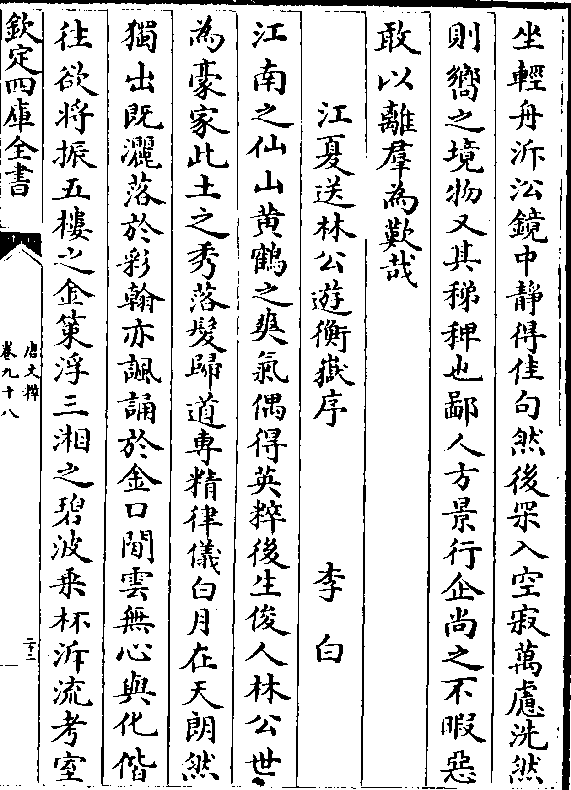 坐輕舟泝沿鏡中靜得佳句然後罙入空寂萬慮洗然
則嚮之境物又其稊稗也鄙人方景行企尚之不暇惡
敢以離羣為歎哉
江夏送林公遊衡嶽序 李白
江南之仙山黄鶴之爽氣偶得英粹後生俊人林公世
為豪家此土之秀落髮歸道專精律儀白月在天朗然
獨出既灑落於彩翰亦諷誦於金口閒雲無心與化偕
往欲將振五樓之金策浮三湘之碧波乗杯泝流考室
欽定四庫全書
唐文粹
卷九十八
二十三